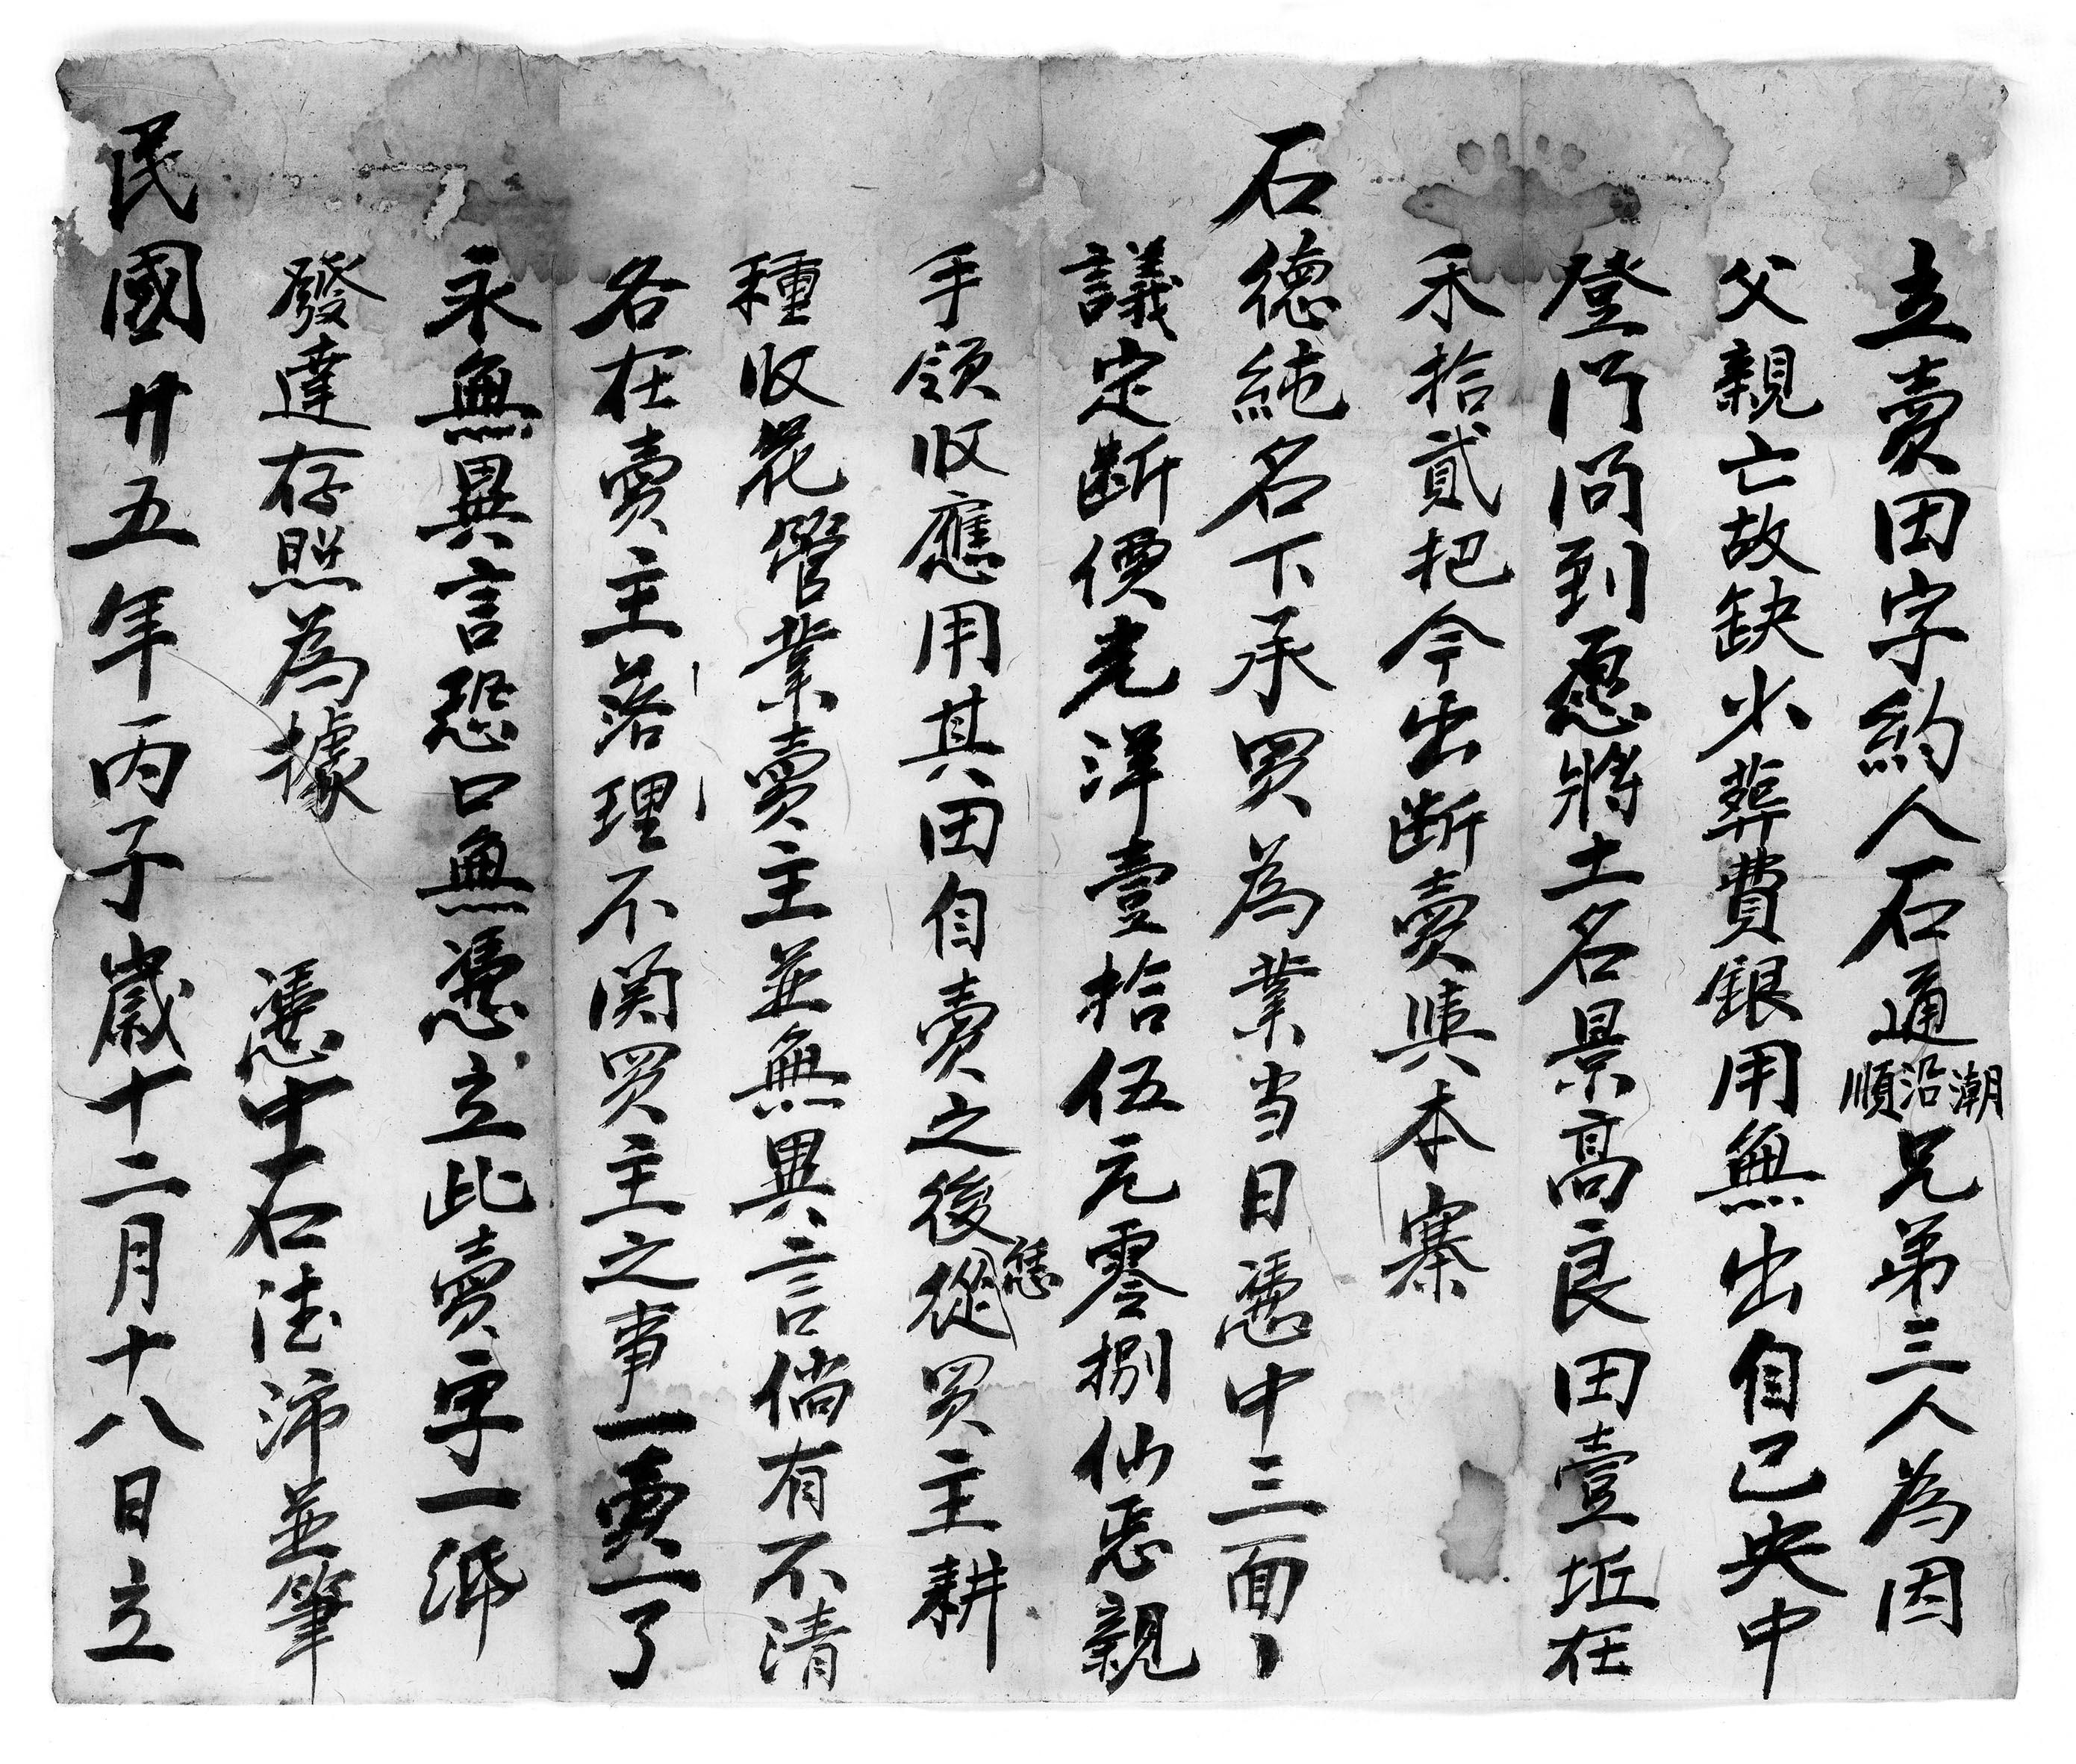 立賣田字約人石通潮沿順兄弟三人為因
父親亡故缺少葬費銀用無出自己央中
登门问到愿將土名景高良田壹坵在
禾拾貳把今出断賣與本寨
石德純名下承買為業当日憑中三面
議定断價光洋壹拾伍元零捌仙悉親
手領收應用其田自賣之後從恁買主耕
種收花管業賣主並無異言倘有不清
各在賣主落理不関買主之事一賣一了
永無異言恐口無憑立此賣字一㡳
發達存照為據 憑中石法沛並筆
民國廿五年丙子歲十二月十八日立